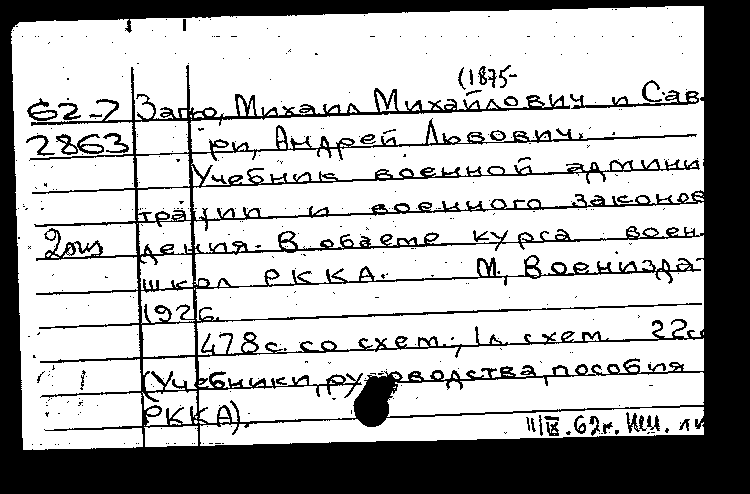 (1875-
62-7 Загю, Михаил Михайлович и Сав-
2863 ри, Андрей Львович.
Учебник военной админи
трации и военного законов
2экз дения. В объеме курса воен.
школ РККА. М, Воениздат
1926.
478 с. со схем.; 1 л. схем. 22 см
(Учебники, руководства, пособия
РККА).
II/IX.62г.